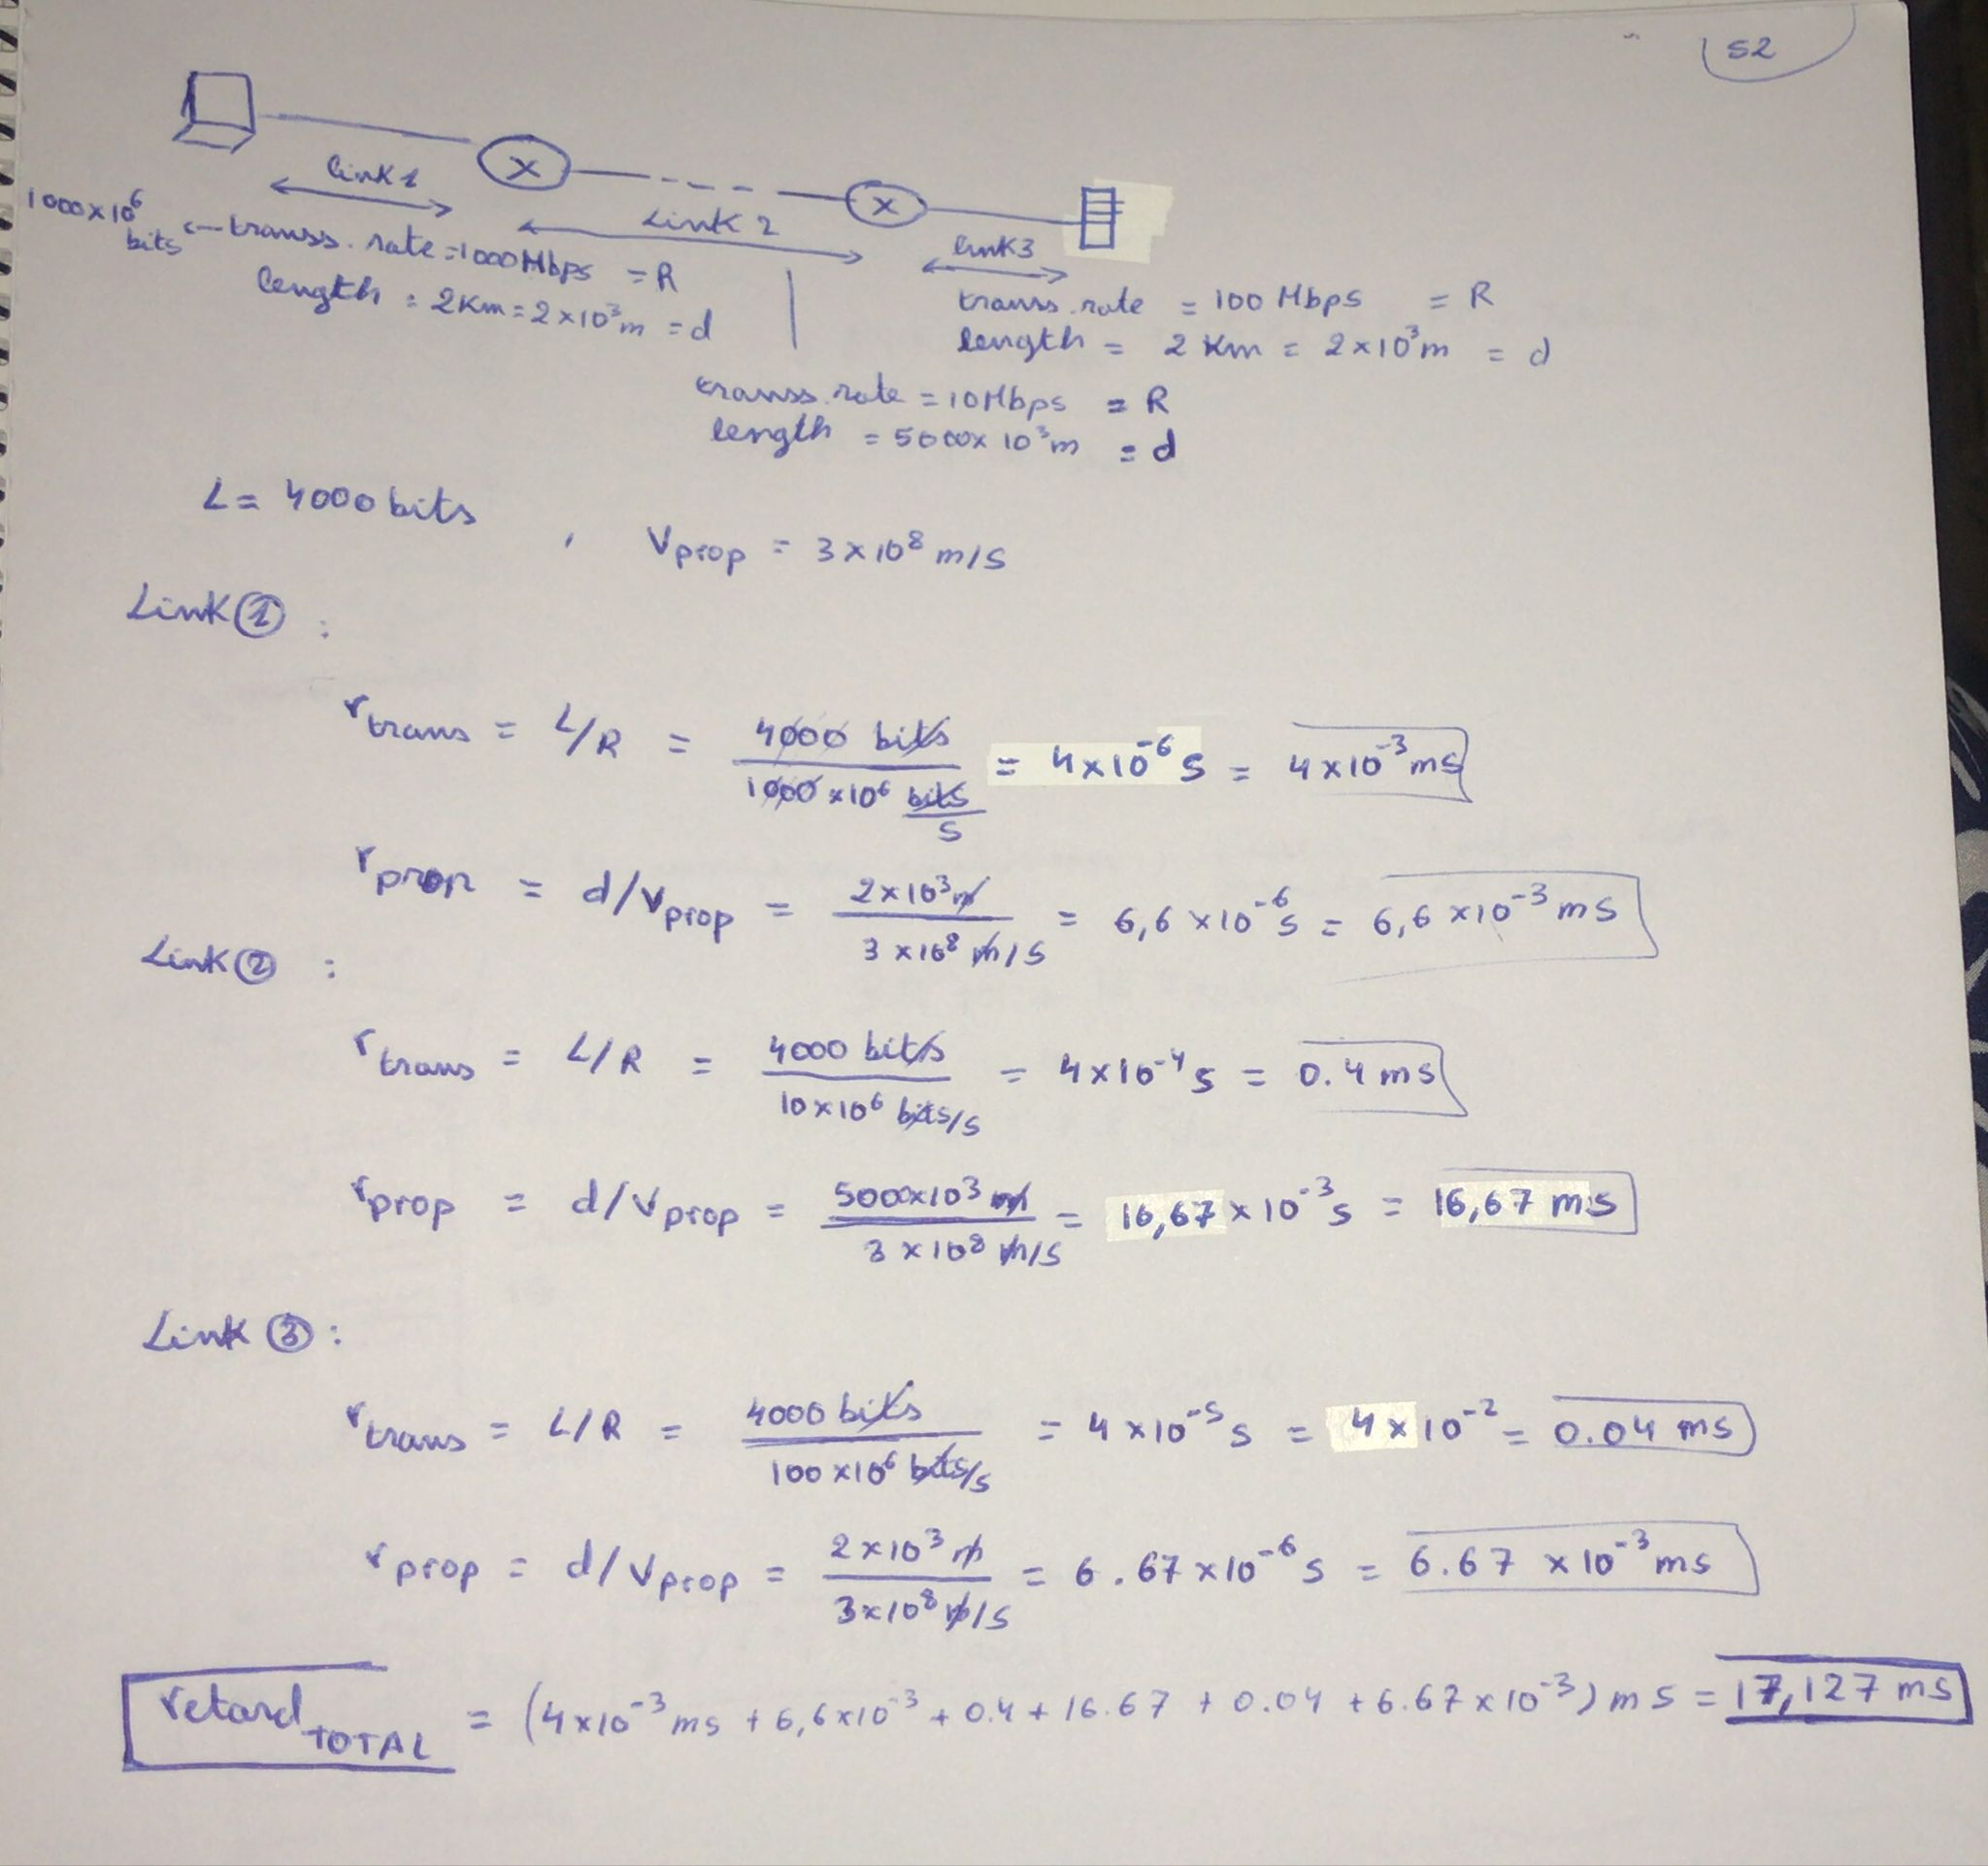 52
link1
Link 2
link3
1000x10⁶ bits <- transs. rate = 1000 Mbps = R
length = 2Km = 2x10³m = d
transs. rate = 100 Mbps = R
length = 2 Km = 2x10³m = d
transs. rate = 10Mbps = R
length = 5000x10³m = d
L = 4000 bits , Vprop = 3x10⁸ m/s
Link ① :
rtrans = L/R = 4000 bits / 1000x10⁶ bits/s = 4x10⁻⁶ s = 4x10⁻³ ms
rprop = d/vprop = 2x10³m / 3x10⁸ m/s = 6,6x10⁻⁶ s = 6,6x10⁻³ ms
Link ② :
rtrans = L/R = 4000 bits / 10x10⁶ bits/s = 4x10⁻⁴ s = 0.4 ms
rprop = d/vprop = 5000x10³ m / 3x10⁸ m/s = 16,67x10⁻³ s = 16,67 ms
Link ③ :
rtrans = L/R = 4000 bits / 100x10⁶ bits/s = 4x10⁻⁵ s = 4x10⁻² = 0.04 ms
rprop = d/vprop = 2x10³ m / 3x10⁸ m/s = 6.67x10⁻⁶ s = 6.67 x10⁻³ ms
retard TOTAL = (4x10⁻³ ms + 6,6x10⁻³ + 0.4 + 16.67 + 0.04 + 6.67x10⁻³) ms = 17,127 ms